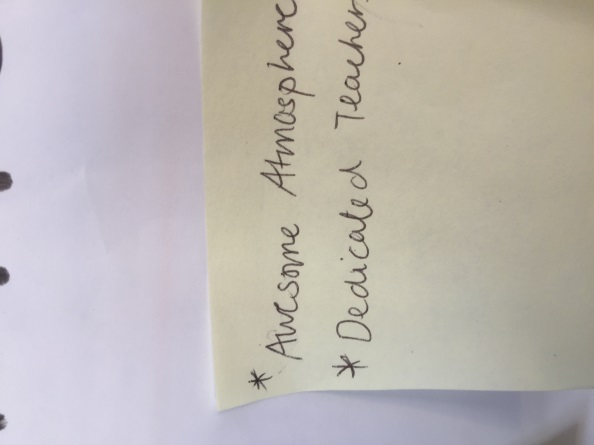 * Awesome Atmosphere
* Dedicated Teacher